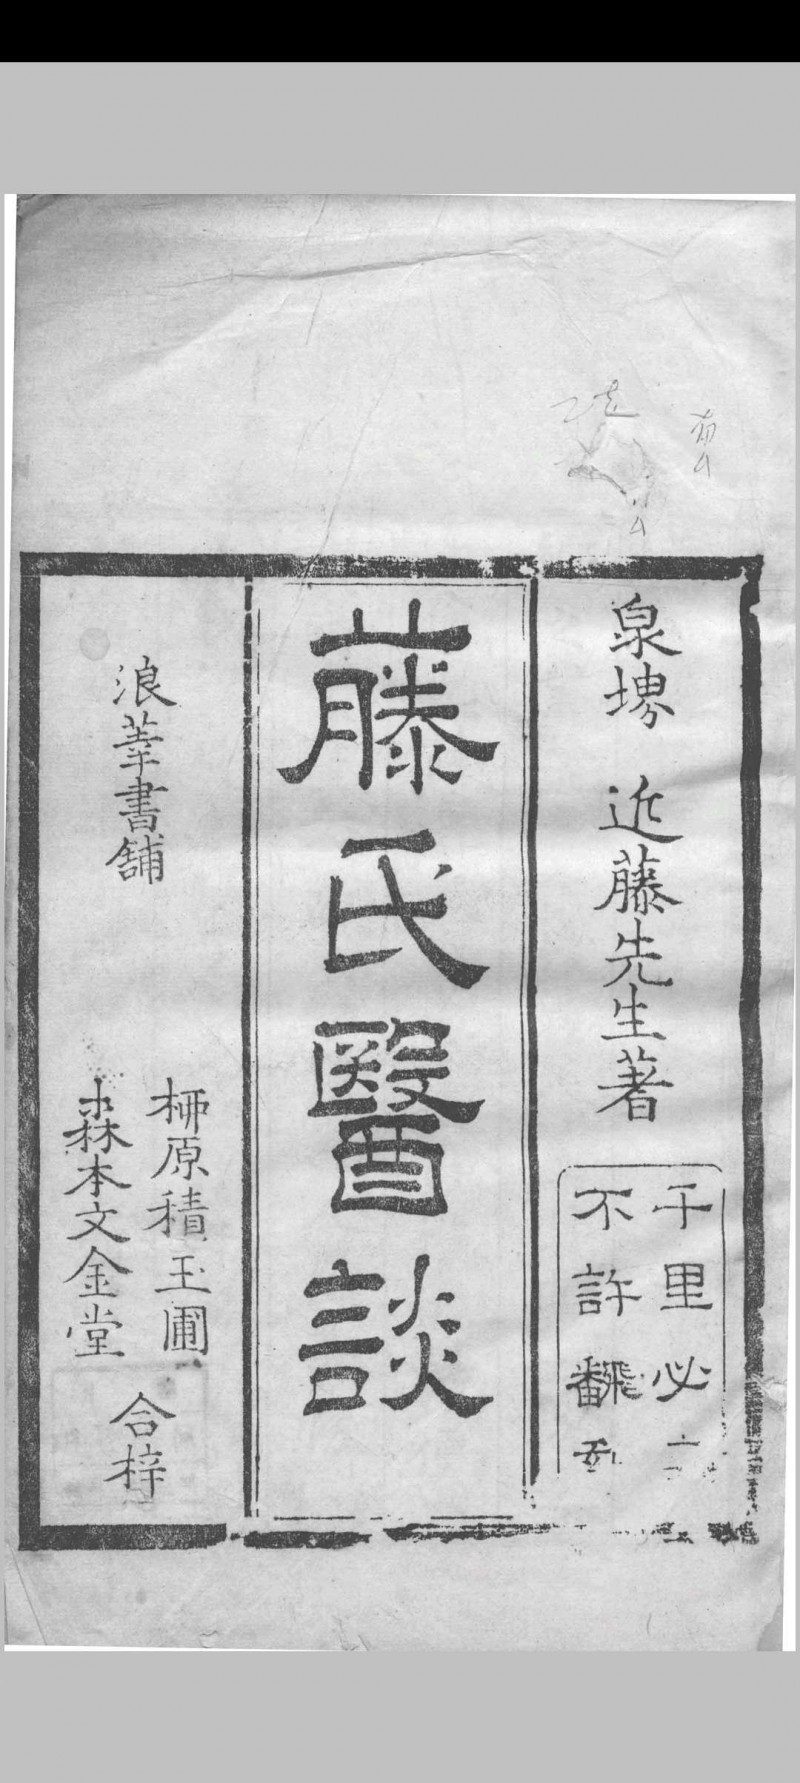 泉堺 近藤先生著
千里必
不許翻刻
藤氏醫談
浪華書舗
柳原積玉圃
森本文金堂
合梓